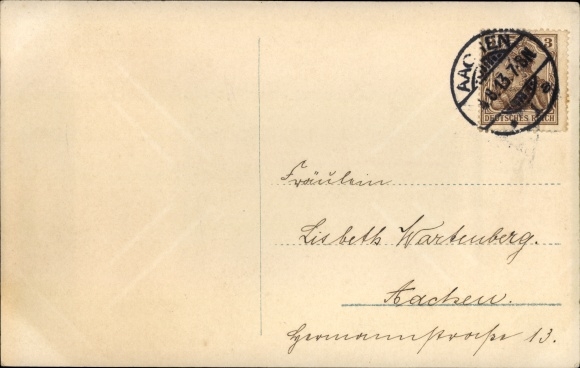 3
AACHEN
4.6.13.7-8N.
* 1 a
DEUTSCHES REICH
Fräulein
Lisbeth Wartenberg.
Aachen.
Hermannstraße 13.